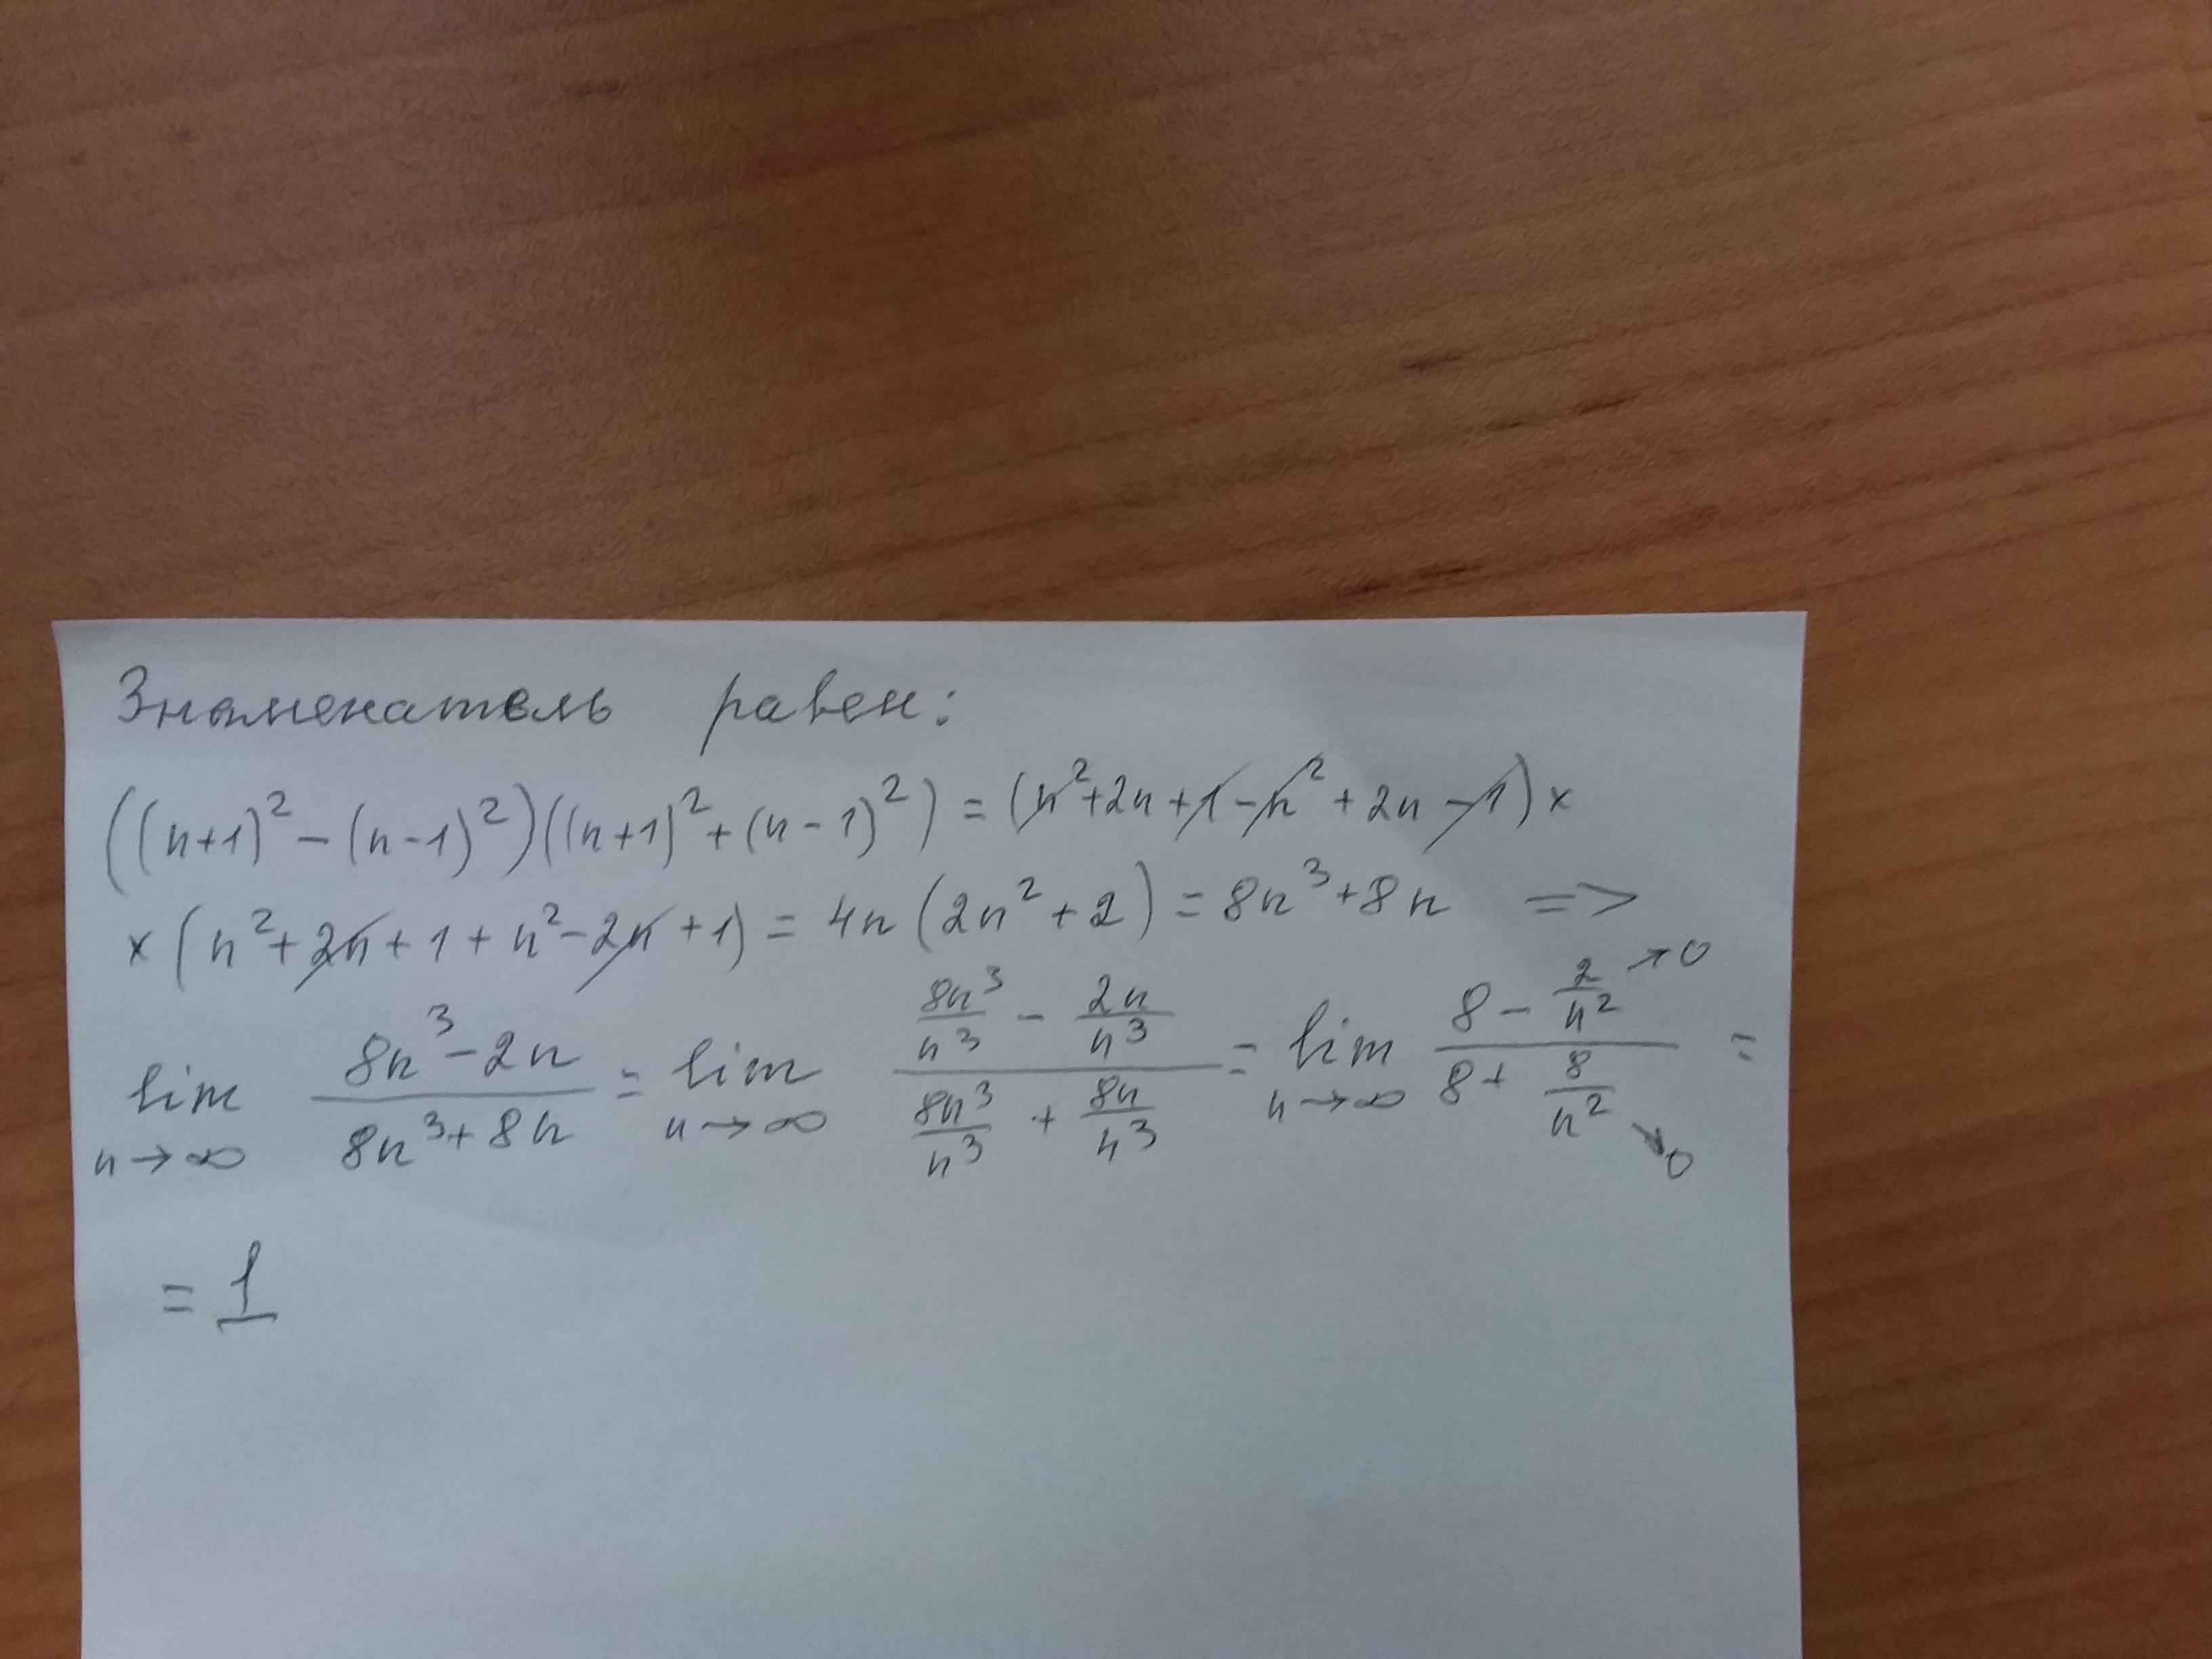 Знаменатель равен:
((n+1)² - (n-1)²)((n+1)² + (n-1)²) = (n²+2n+1-n²+2n-1)×
×(n²+2n+1+n²-2n+1) = 4n(2n²+2) = 8n³+8n =>
lim n→∞ (8n³-2n)/(8n³+8n) = lim n→∞ (8n³/n³ - 2n/n³)/(8n³/n³ + 8n/n³) = lim n→∞ (8 - 2/n² →0)/(8 + 8/n² ↘0) =
= 1